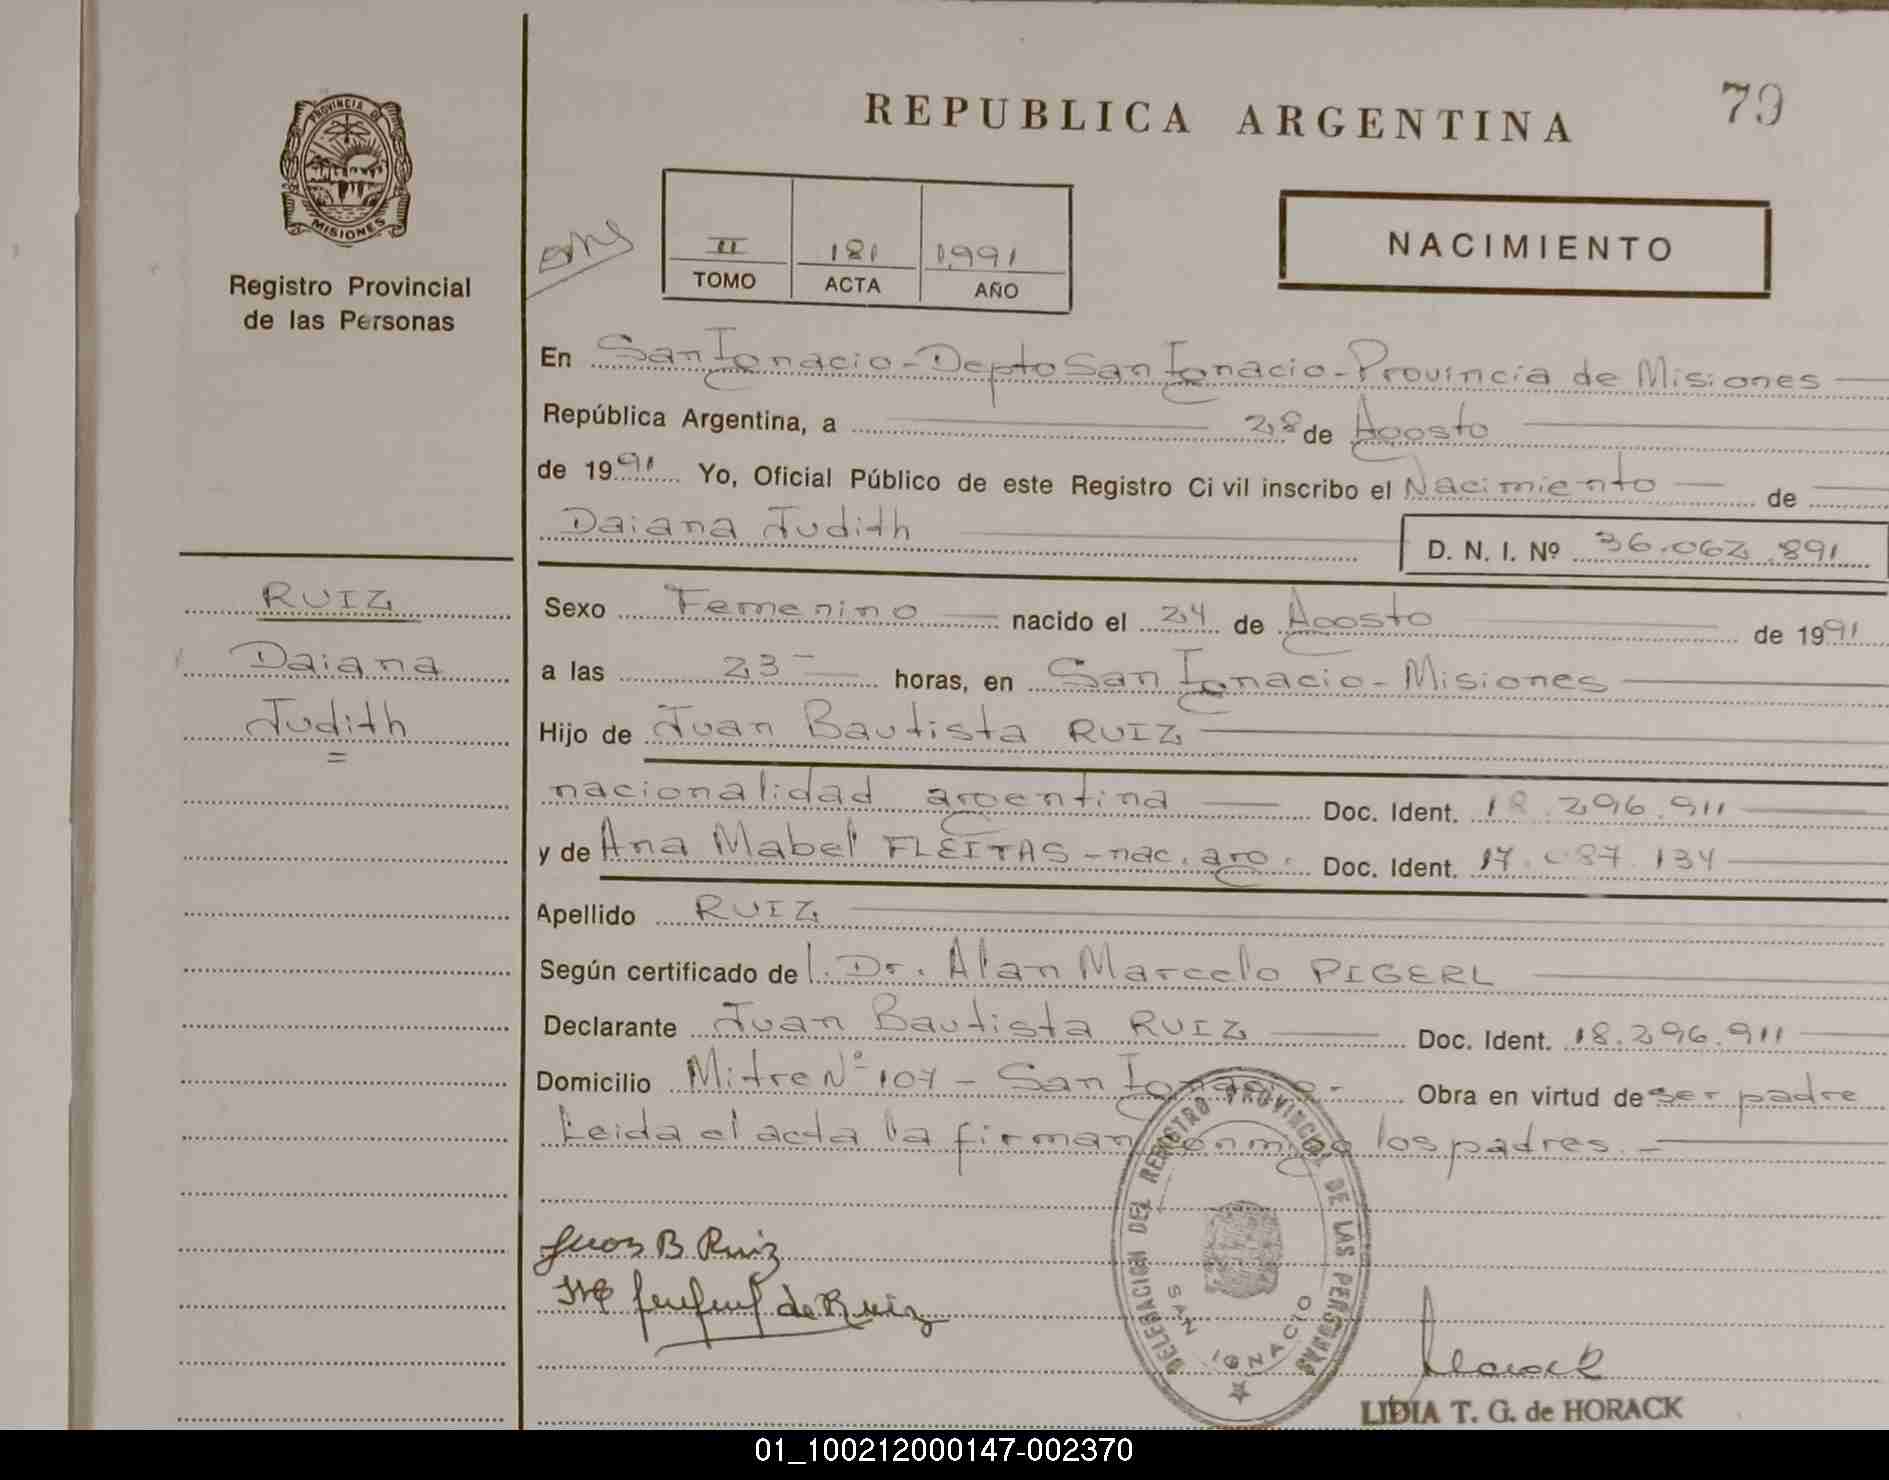 REPUBLICA ARGENTINA
79
PROVINCIA DE
MISIONES
Registro Provincial
de las Personas
II 181 1991
TOMO ACTA AÑO
NACIMIENTO
En San Ignacio - Depto San Ignacio - Provincia de Misiones
República Argentina, a 28 de Agosto
de 1991 Yo, Oficial Público de este Registro Civil inscribo el Nacimiento de
Daiana Judith D. N. I. Nº 36.062.891
RUIZ
Daiana
Judith
Sexo Femenino nacido el 24 de Agosto de 1991
a las 23 horas, en San Ignacio - Misiones
Hijo de Juan Bautista RUIZ
nacionalidad argentina Doc. Ident. 18.296.911
y de Ana Mabel FLEITAS - nac. arg. Doc. Ident. 17.087.134
Apellido RUIZ
Según certificado del Dr. Alan Marcelo PIGERL
Declarante Juan Bautista RUIZ Doc. Ident. 18.296.911
Domicilio Mitre Nº 107 - San Ignacio - Obra en virtud de ser padre
Leida el acta la firman conmigo los padres. -
Juan B Ruiz
de Ruiz
DELEGACION DEL REGISTRO PROVINCIAL DE LAS PERSONAS
SAN IGNACIO
Horack
LIDIA T. G. de HORACK
01_100212000147-002370